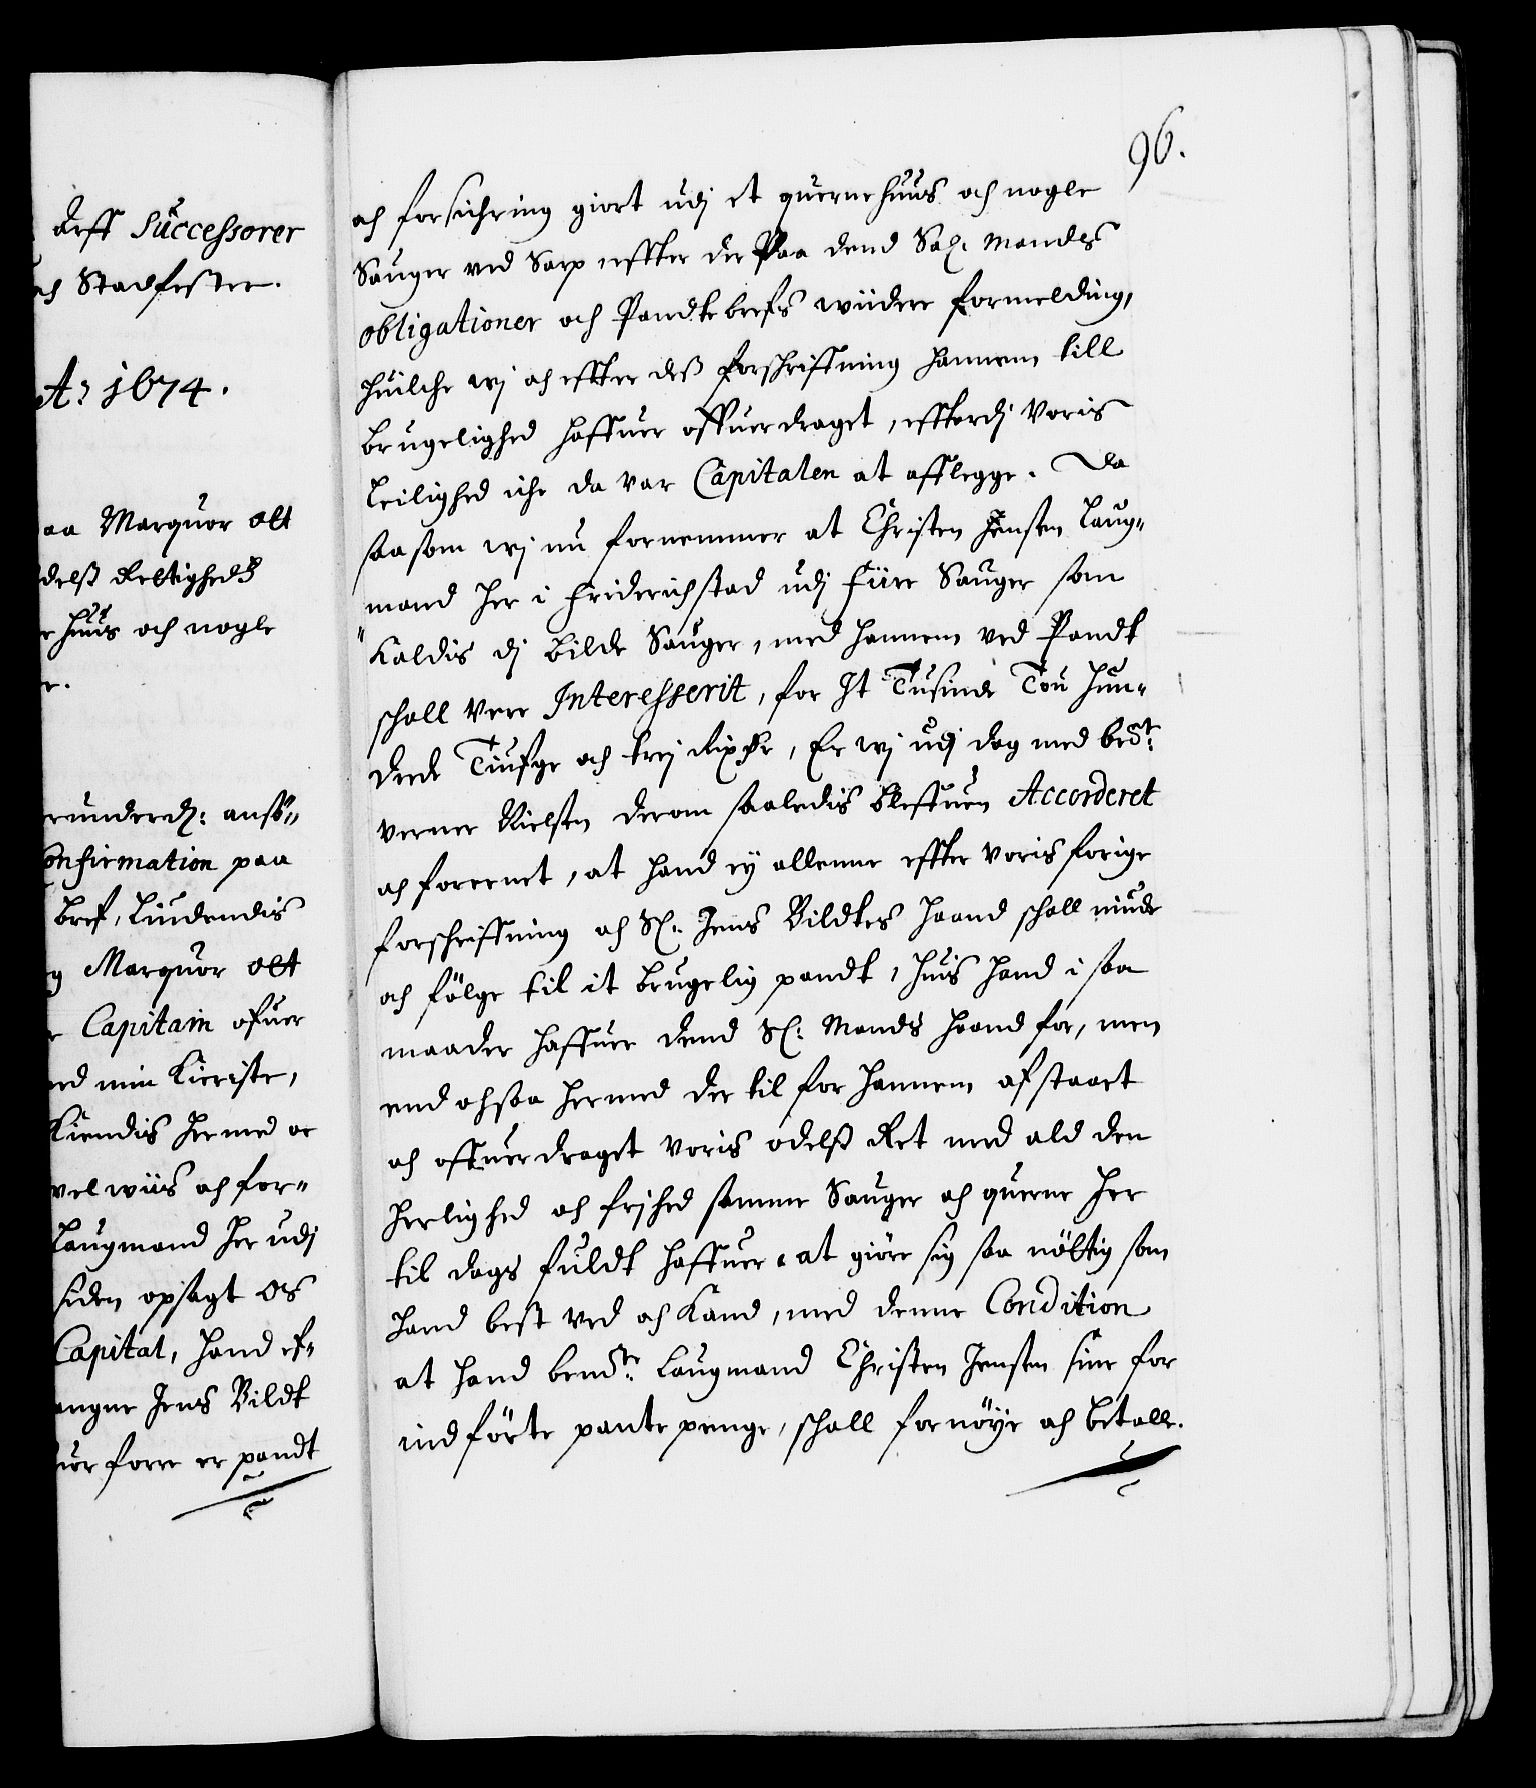 deff Successorer
och Stadfester.
Aº 1674.
paa Marquor Olt
odelß Rettigheds
huus och nogle
underd: ansö„
Confirmation paa
bref, liudendis
Marquor Olt
Capitain ofuer
med min Kieriste,
Kiendis hermed os
velwiis och for„
Laugmand her udj
siden opsagt os
Capital, hand ef„
Jens Bildt
forre er pandt
96.
och forsichring giort udj et querne huus och nogle
Sauger ved Sarp effter der Paa dend Sal: Mandes
obligationer och Pandtebrefs wiidere formelding,
huilche wj och effter deß forschriffning hannem till
brugelighed haffuer offuerdraget, effterdj Voris
leilighed iche da var Capitalen at afflegge. Da
saasom wj nu fornemmer at Christen Jensen Laug„
mand her i Friderichstad udj fiire Sauger som
Kaldis dj bilde Sauger, med hannem ved Pandt
schall Vere Interesserit, for It Tusinde Tou Hun„
drede Tiufge och trej Rixdr, Er wj udj dag med bete:
Verner Nielsen derom saaledis bleffuen Accorderet
och foreenet, at hand ej allenne effter Voris forige
forschriffning och Sl: Jens Bildtes haand schall niude
och fölge til it brugelig pandt, huis hand i saa
maader haffuer dend Sl: Mands haand for, men
end ochsaa hermed der til for hannem afstaaet
och offuerdraget Voris odelß Ret med ald den
herlighed och frihed samme Sauger och querne her
til dags fuldt haffuer, at giöre sig saa nöttig som
hand best ved och Kand, med denne Condition
at hand bemte: Laugmand Christen Jensen sine for
indförte pante penge, schall fornöye och betalle.